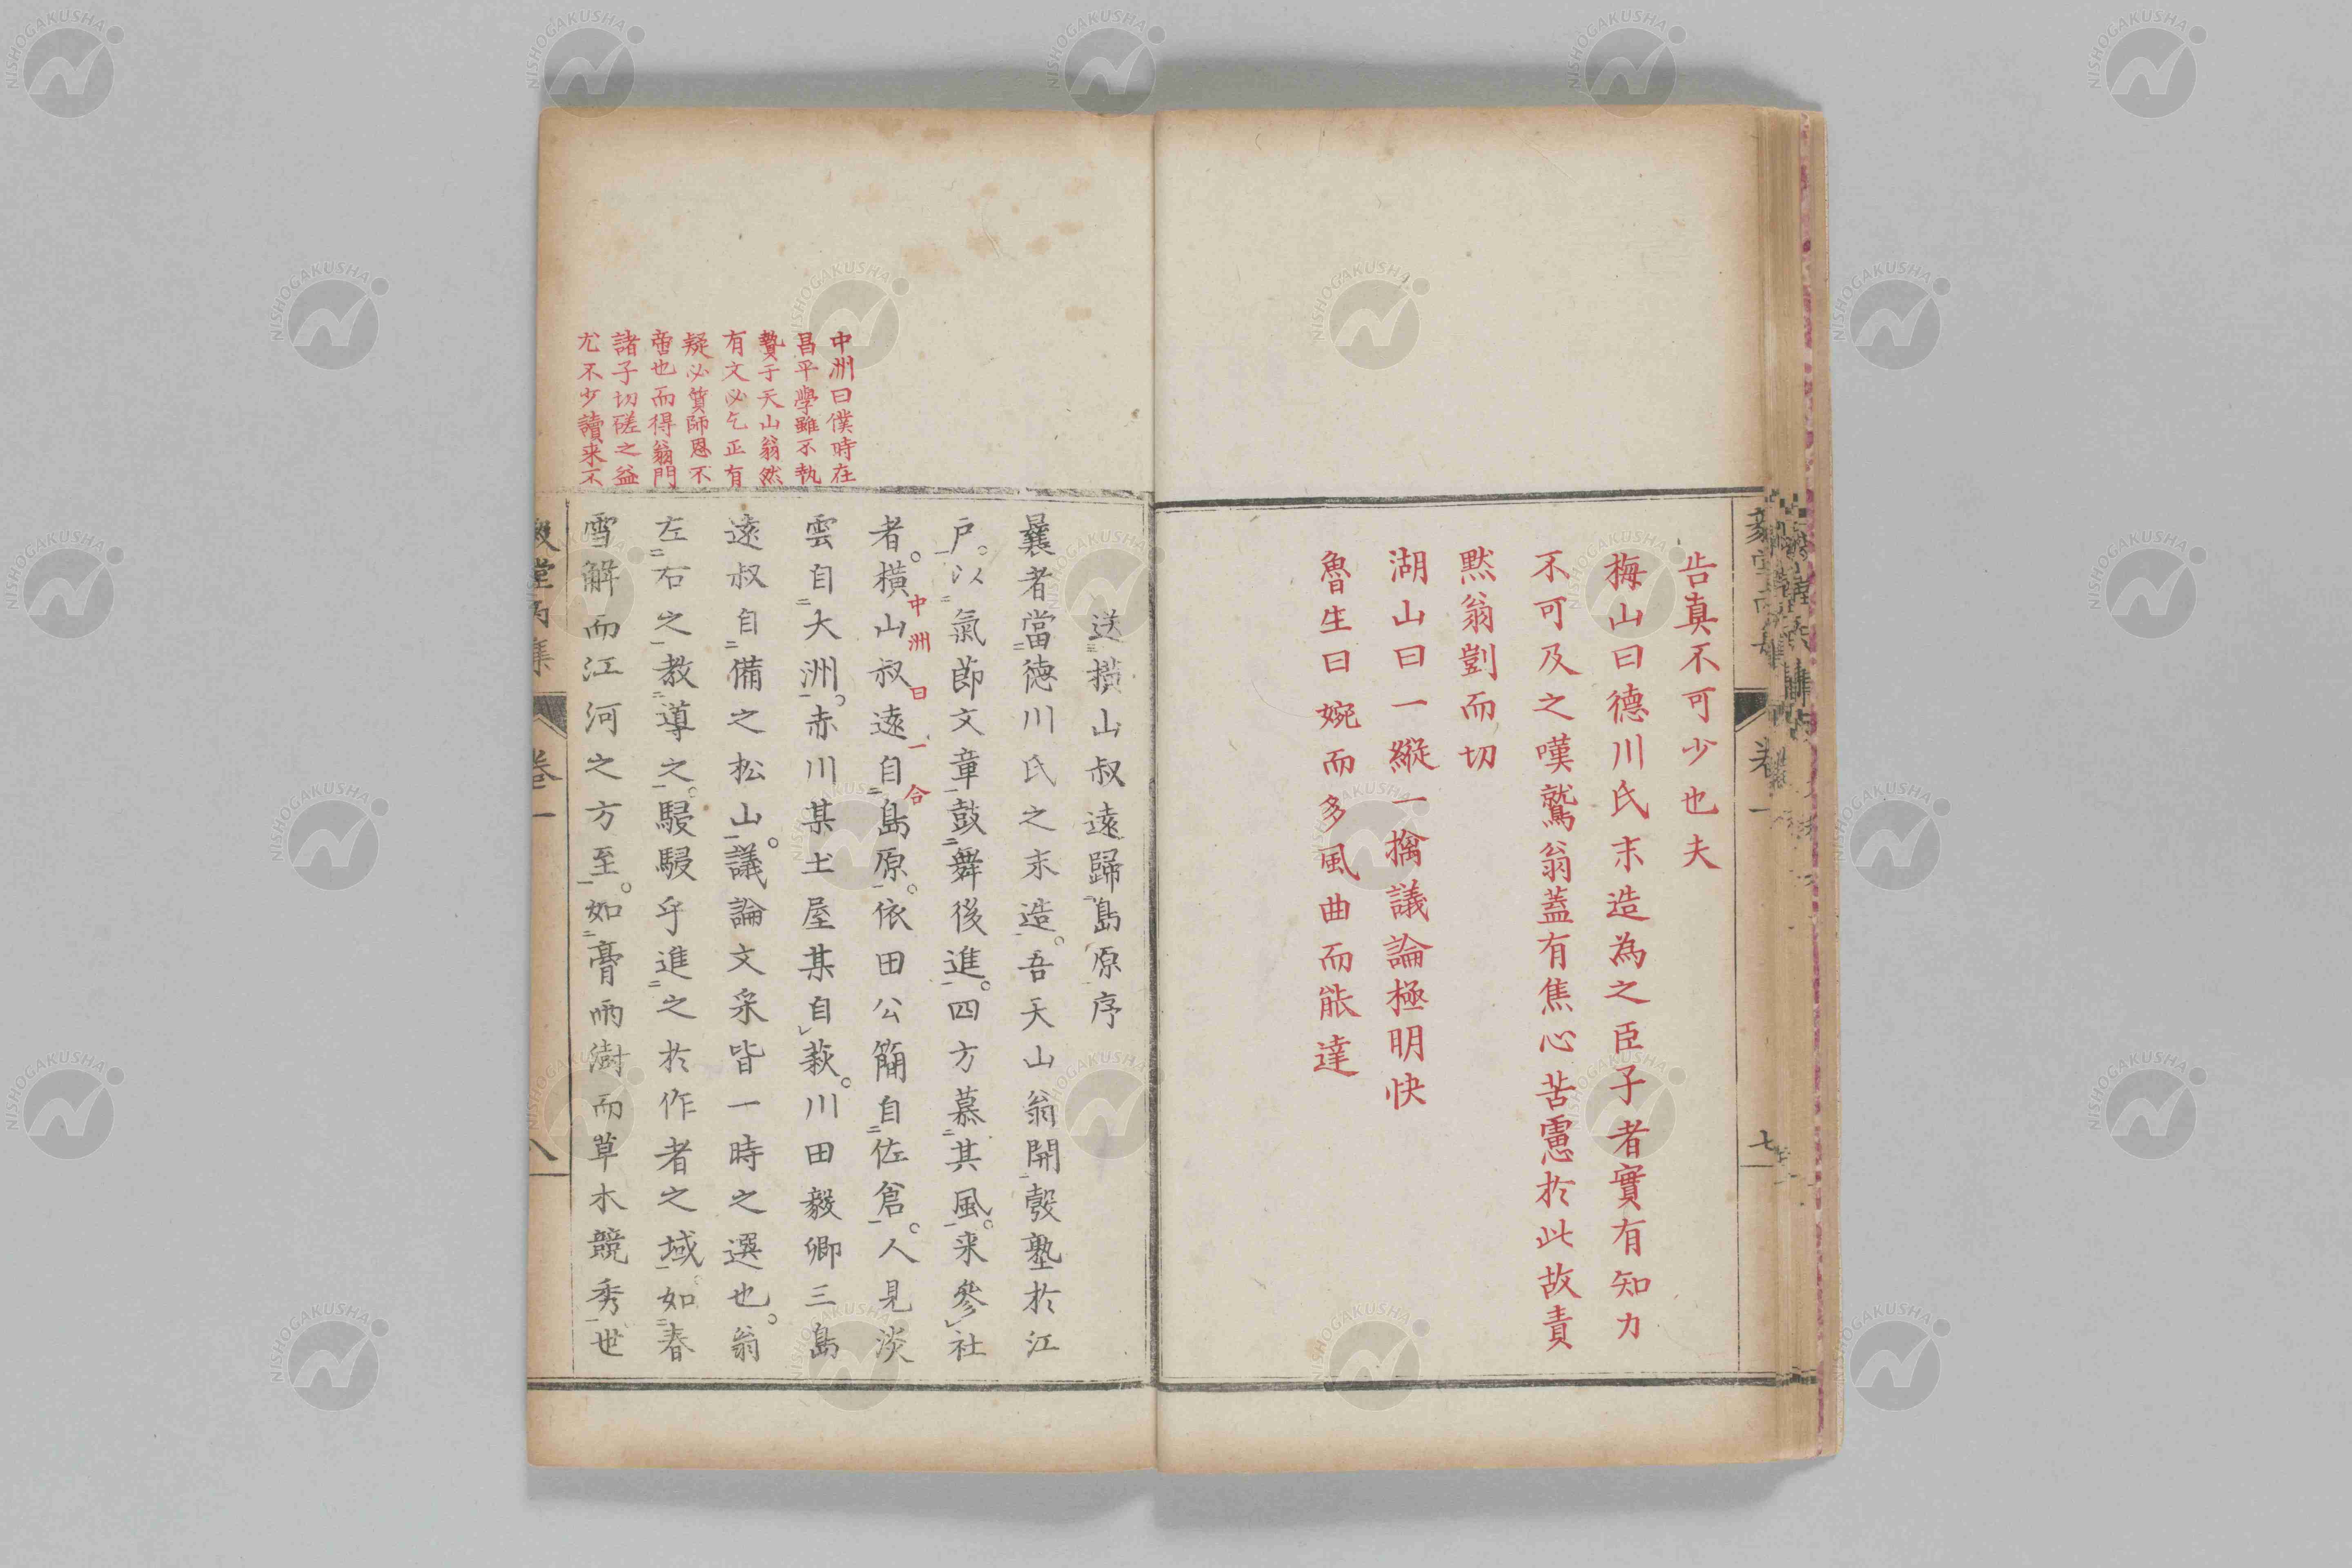 告真不可少也夫
梅山曰德川氏末造為之臣子者實有知力
不可及之嘆鷲翁蓋有焦心苦慮於此故責
黙翁劉而切
湖山曰一縱一擒議論極明快
魯生曰婉而多風曲而能達
卷一
七
中洲曰僕時在
昌平學雖不執
贄于天山翁然
有文必乞正有
疑必質師恩不
啻也而得翁門
諸子切磋之益
尤不少讀来不
送橫山叔遠歸島原序
曩者當德川氏之末造。吾天山翁開彀塾於江
戶。以氣節文章鼓舞後進。四方慕其風。来參社
者。橫山叔遠自島原。依田公簡自佐倉。人見淡
中洲曰一合
雲自大洲。赤川某土屋某自萩。川田毅卿三島
遠叔自備之松山。議論文采皆一時之選也。翁
左右之教導之。駸駸乎進之於作者之域。如春
雪解而江河之方至。如膏雨澍而草木競秀世
毅堂丙集
卷一
八
NISHOGAKUSHA